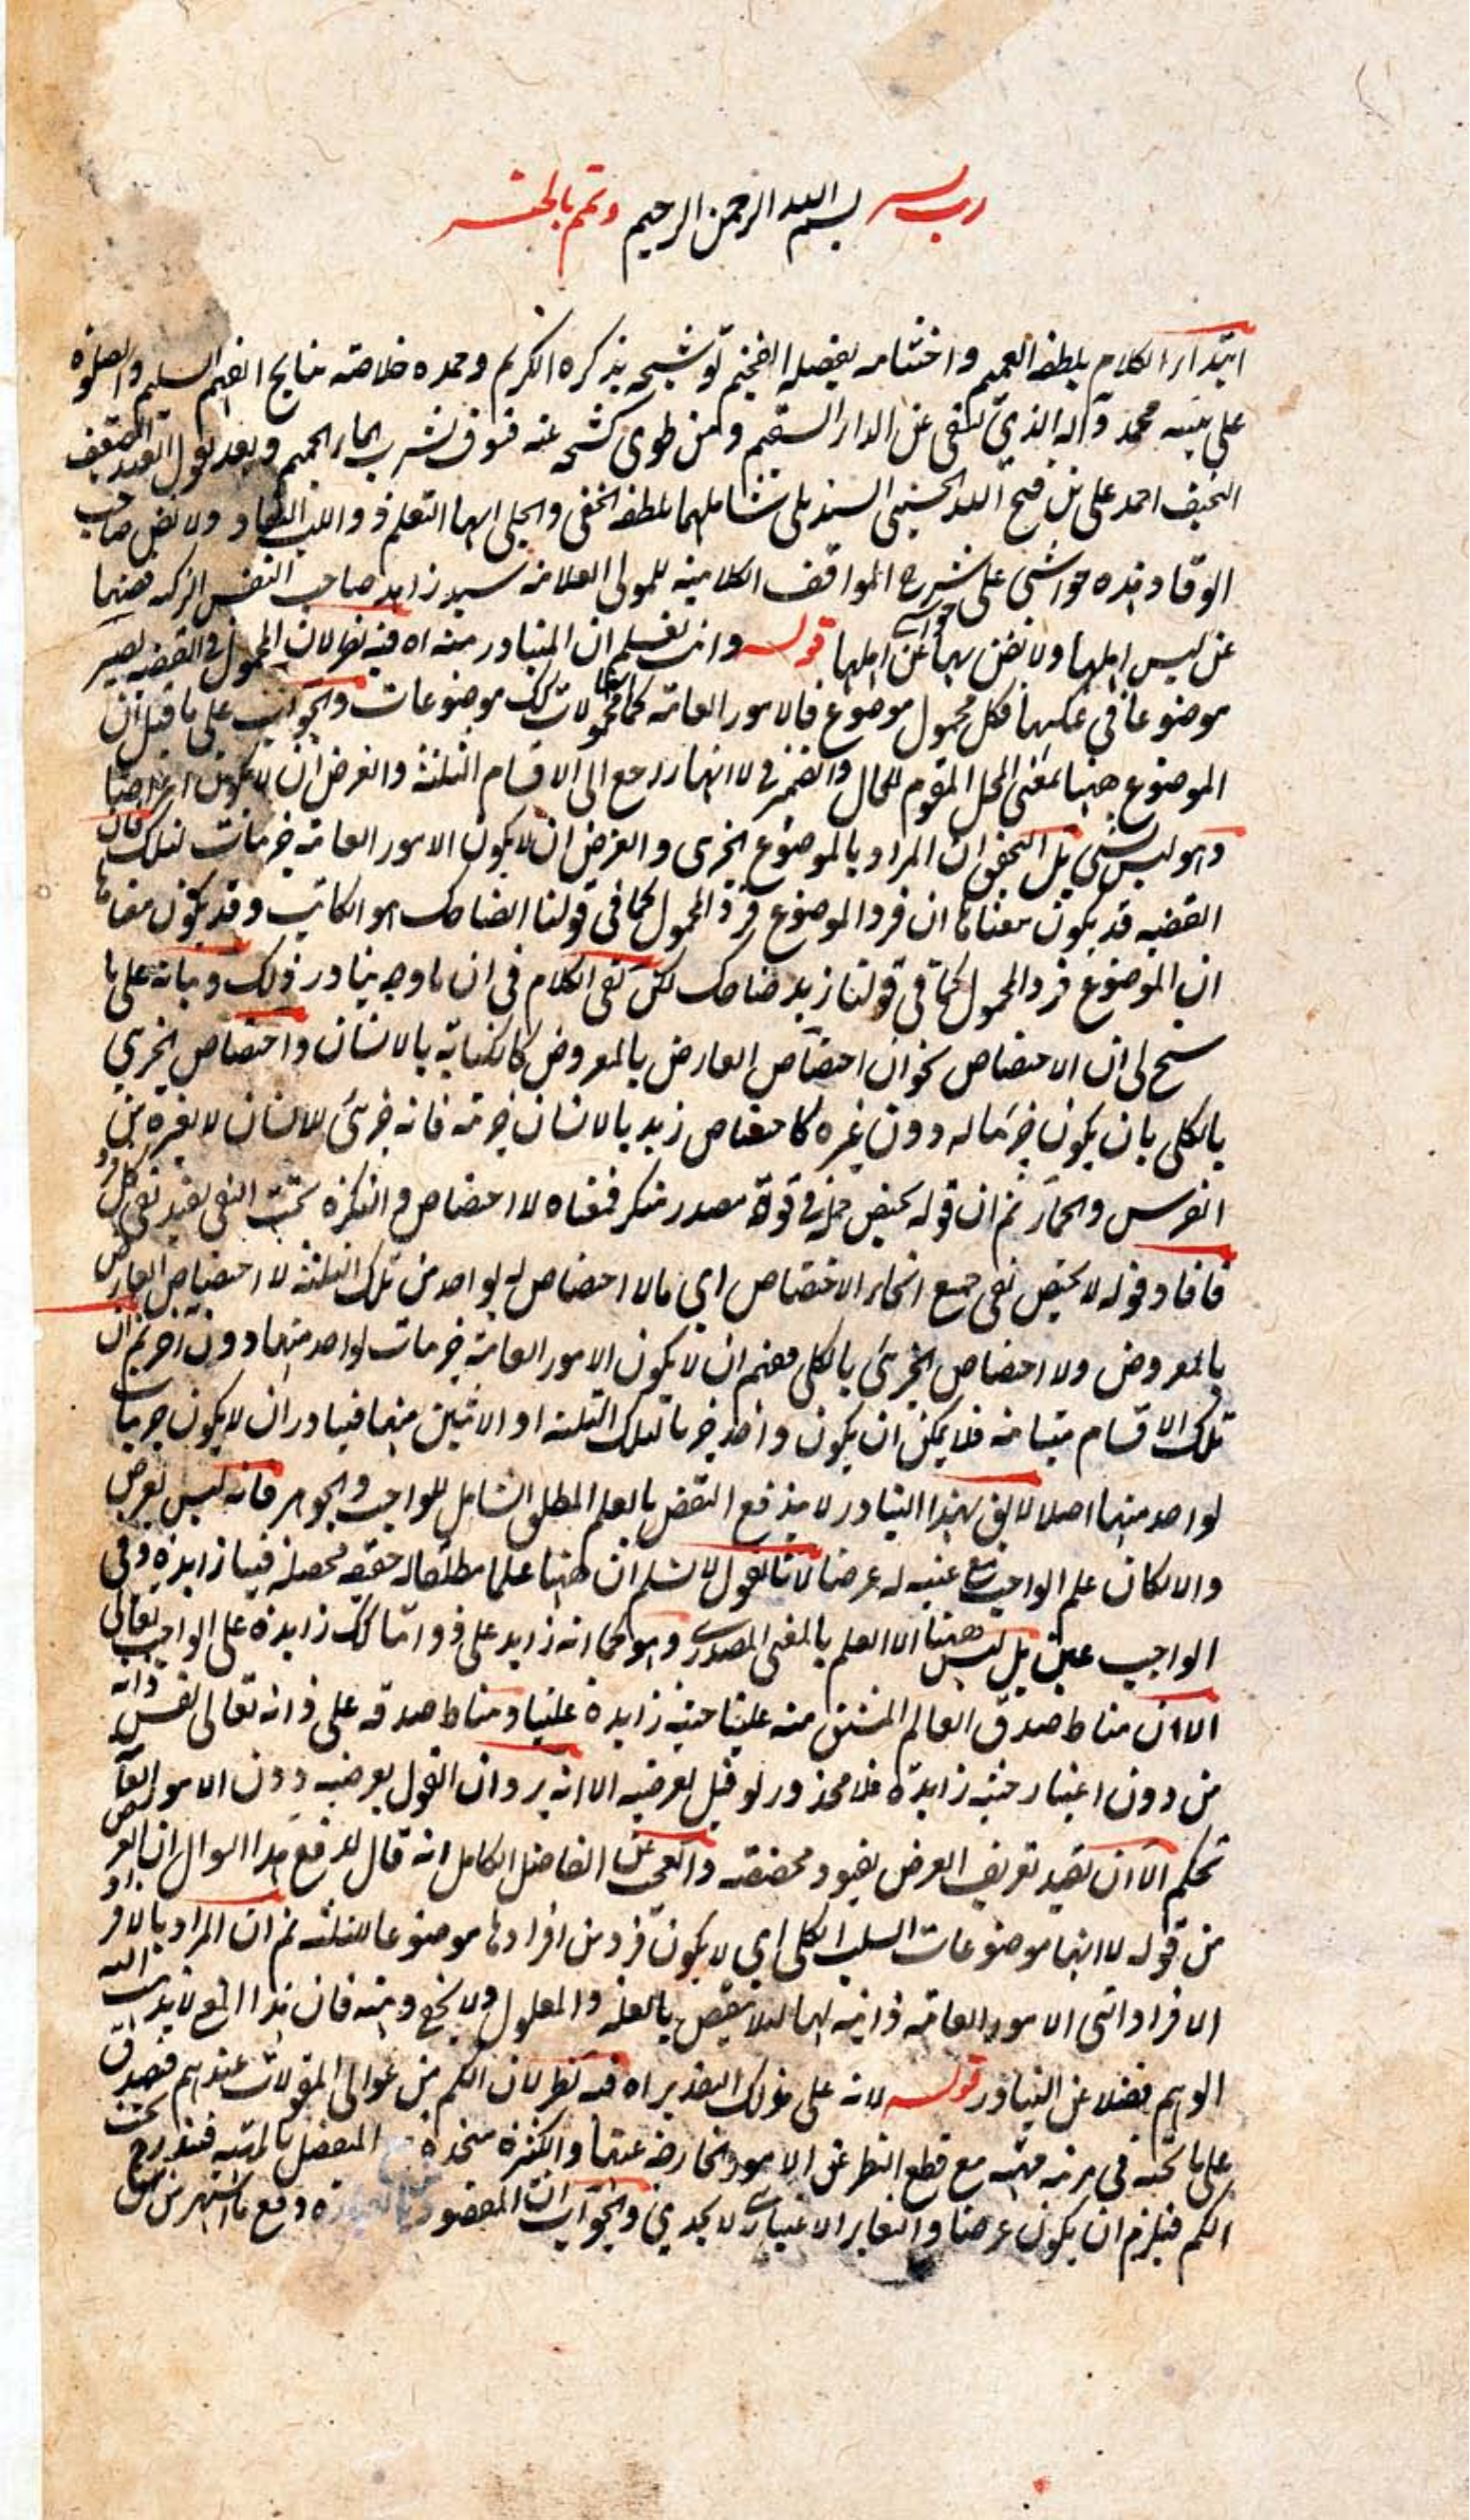 رب يسر بسم الله الرحمن الرحيم وتمم بالخير
ابتداء الكلام بلطفه العميم واختتامه بفضله الفخيم توشيحه بذكره الكريم وحمده خلاصة نتايج الفهم السليم والصلوة
على نبيه محمد وآله الذي عن الدار السقيم ومن طوى كشحه عنه فسوف يشرب الماء الحميم وبعد يقول العبد الضعيف
النحيف احمد على بن فتح الله الحسيني السنديلي بلطفه الخفى والجلى ايها التعلم ذو اللب النقاد ولا صاحب
الوقاد هذه حواشى على شرح المواقف الكلامية للمولى العلامة سيد زاهد صاحب النفس الزكية
عن ليس اهلها ولا تضن بها عن اهلها قوله وانت تعلم ان المتبادر منه اه فيه نظر لان المحمول فى القضيه يصير
موضوعا فى عكسها فكل محمول موضوع فالامور العامة كما انها محمولات كك موضوعات والجواب على ما قيل ان
الموضوع ههنا بمعنى المحل المقوم للحال والضمير فى لا انها راجع الى الاقسام الثلثة والغرض ان لا يكون اعراضا
وهو ليس بشى بل التحقيق ان المراد بالموضوع الجزى والغرض ان لا يكون الامور العامة جزئيات لتلك فان
القضيه قد يكون معناها ان فرد الموضوع فرد المحمول كما فى قولنا الضاحك هو الكاتب وقد يكون معناها
ان الموضوع فرد المحمول كما فى قولنا زيد ضاحك لكن بقى الكلام فى ان ما وجه تبادر ذلك وبيانه على ما
سنح لى ان الاختصاص نحوان اختصاص العارض بالمعروض كالكتابة بالانسان واختصاص الجزئي
بالكلى بان يكون جزئيا له دون غيره كاختصاص زيد بالانسان فانه جزئى للانسان لا لغيره من
الفرس والحمار ثم ان قوله يختص جملة فى قوة مصدر منكر فمعناه لا اختصاص والنكرة تحت النفى يفيد نفى كل فرد
فافاد قوله لا يختص نفى جميع انحاء الاختصاص اي ما لا اختصاص له بواحد من تلك الثلثة لا اختصاص العارض
بالمعروض ولا اختصاص الجزئى بالكلى ففهم ان لا يكون الامور العامة جزئيات لواحد منهما دون آخر ثم ان
تلك الاقسام متباينه فلا يمكن ان يكون واحد جزئيا لتلك الثلثة او الاثنين منها فتبادر ان لا يكون جزئيات
لواحد منها اصلا لا يق بهذا التبادر لا يندفع النقض بالعلم المطلق الشامل للواجب والجوهر فانه ليس بعرض
والا لكان علم الواجب مع عينيه له عرضا لانا نقول لا نسلم ان ههنا علما مطلقا له حقيقة محصلة فينا زايدة وفى
الواجب عين بل ليس ههنا الا العلم بالمعنى المصدرى وهو كما انه زايد على ذواتنا كك زايدة على الواجب تعالى
الا ان مناط صدق العالم المشتق منه علينا حيثية زايدة علينا ومناط صدقه على ذاته تعالى نفس ذاته
من دون اعتبار حيثية زايدة فلا محذور لو قيل بعرضيه الا انه يرد ان القول بعرضيه دون الامور العامة
تحكم الا ان يقيد تعريف العرض بقيود مخصصة والعجب من الفاضل الكامل انه قال لدفع هذا السوال ان الغرض
من قوله لا انها موضوعات السلب الكلى اي لا يكون فرد من افرادها موضوعا للثلثه ثم ان المراد بالافراد
الافراد التى الامور العامة ذاتية لها لئلا ينقض بالعلة والمعلول ولا يخفى وهنه فان هذا المعنى لا يذهب اليه
الوهم فضلا عن التبادر قوله لانه على ذلك التقدير اه فيه نظر لان الكم من عوالى المقولات عندهم فصدق
على ما تحته فى مرتبة مع قطع النظر عن الامور الخارجة عنها والكثرة متحدة المنفصل بالماهية فيندرج تحت
الكم فيلزم ان يكون عرضا والتغاير الاعتبارى لا يجدي والجواب ان المقصود دفع ما اشتهر من